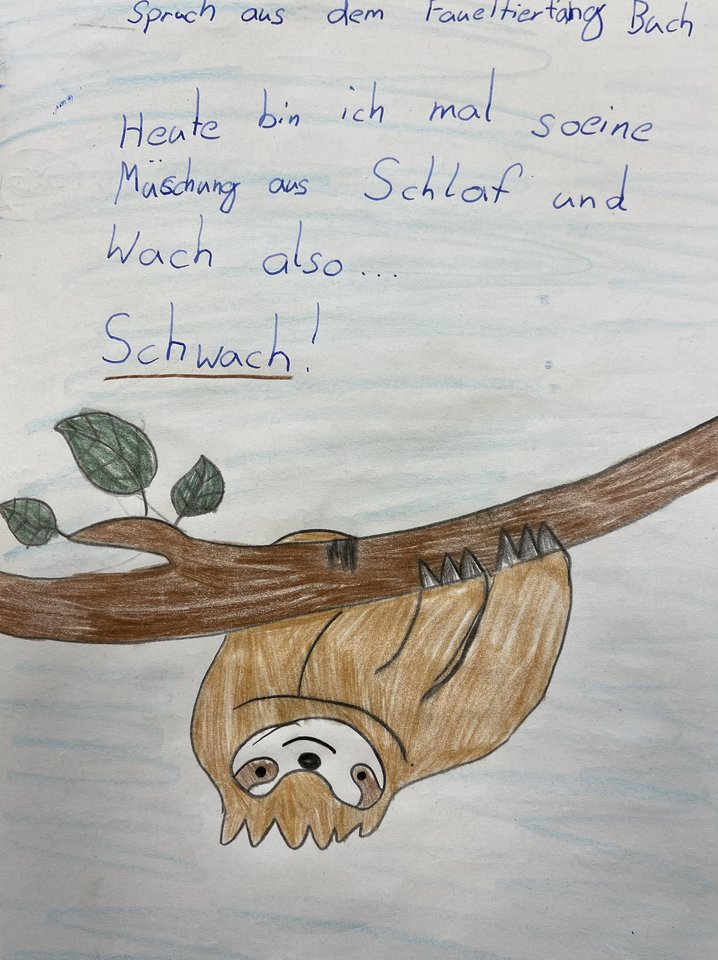 Spruch aus dem Faueltiertäng Buch
Heute bin ich mal soeine
Mäschung aus Schlaf und
Wach also...
Schwach!